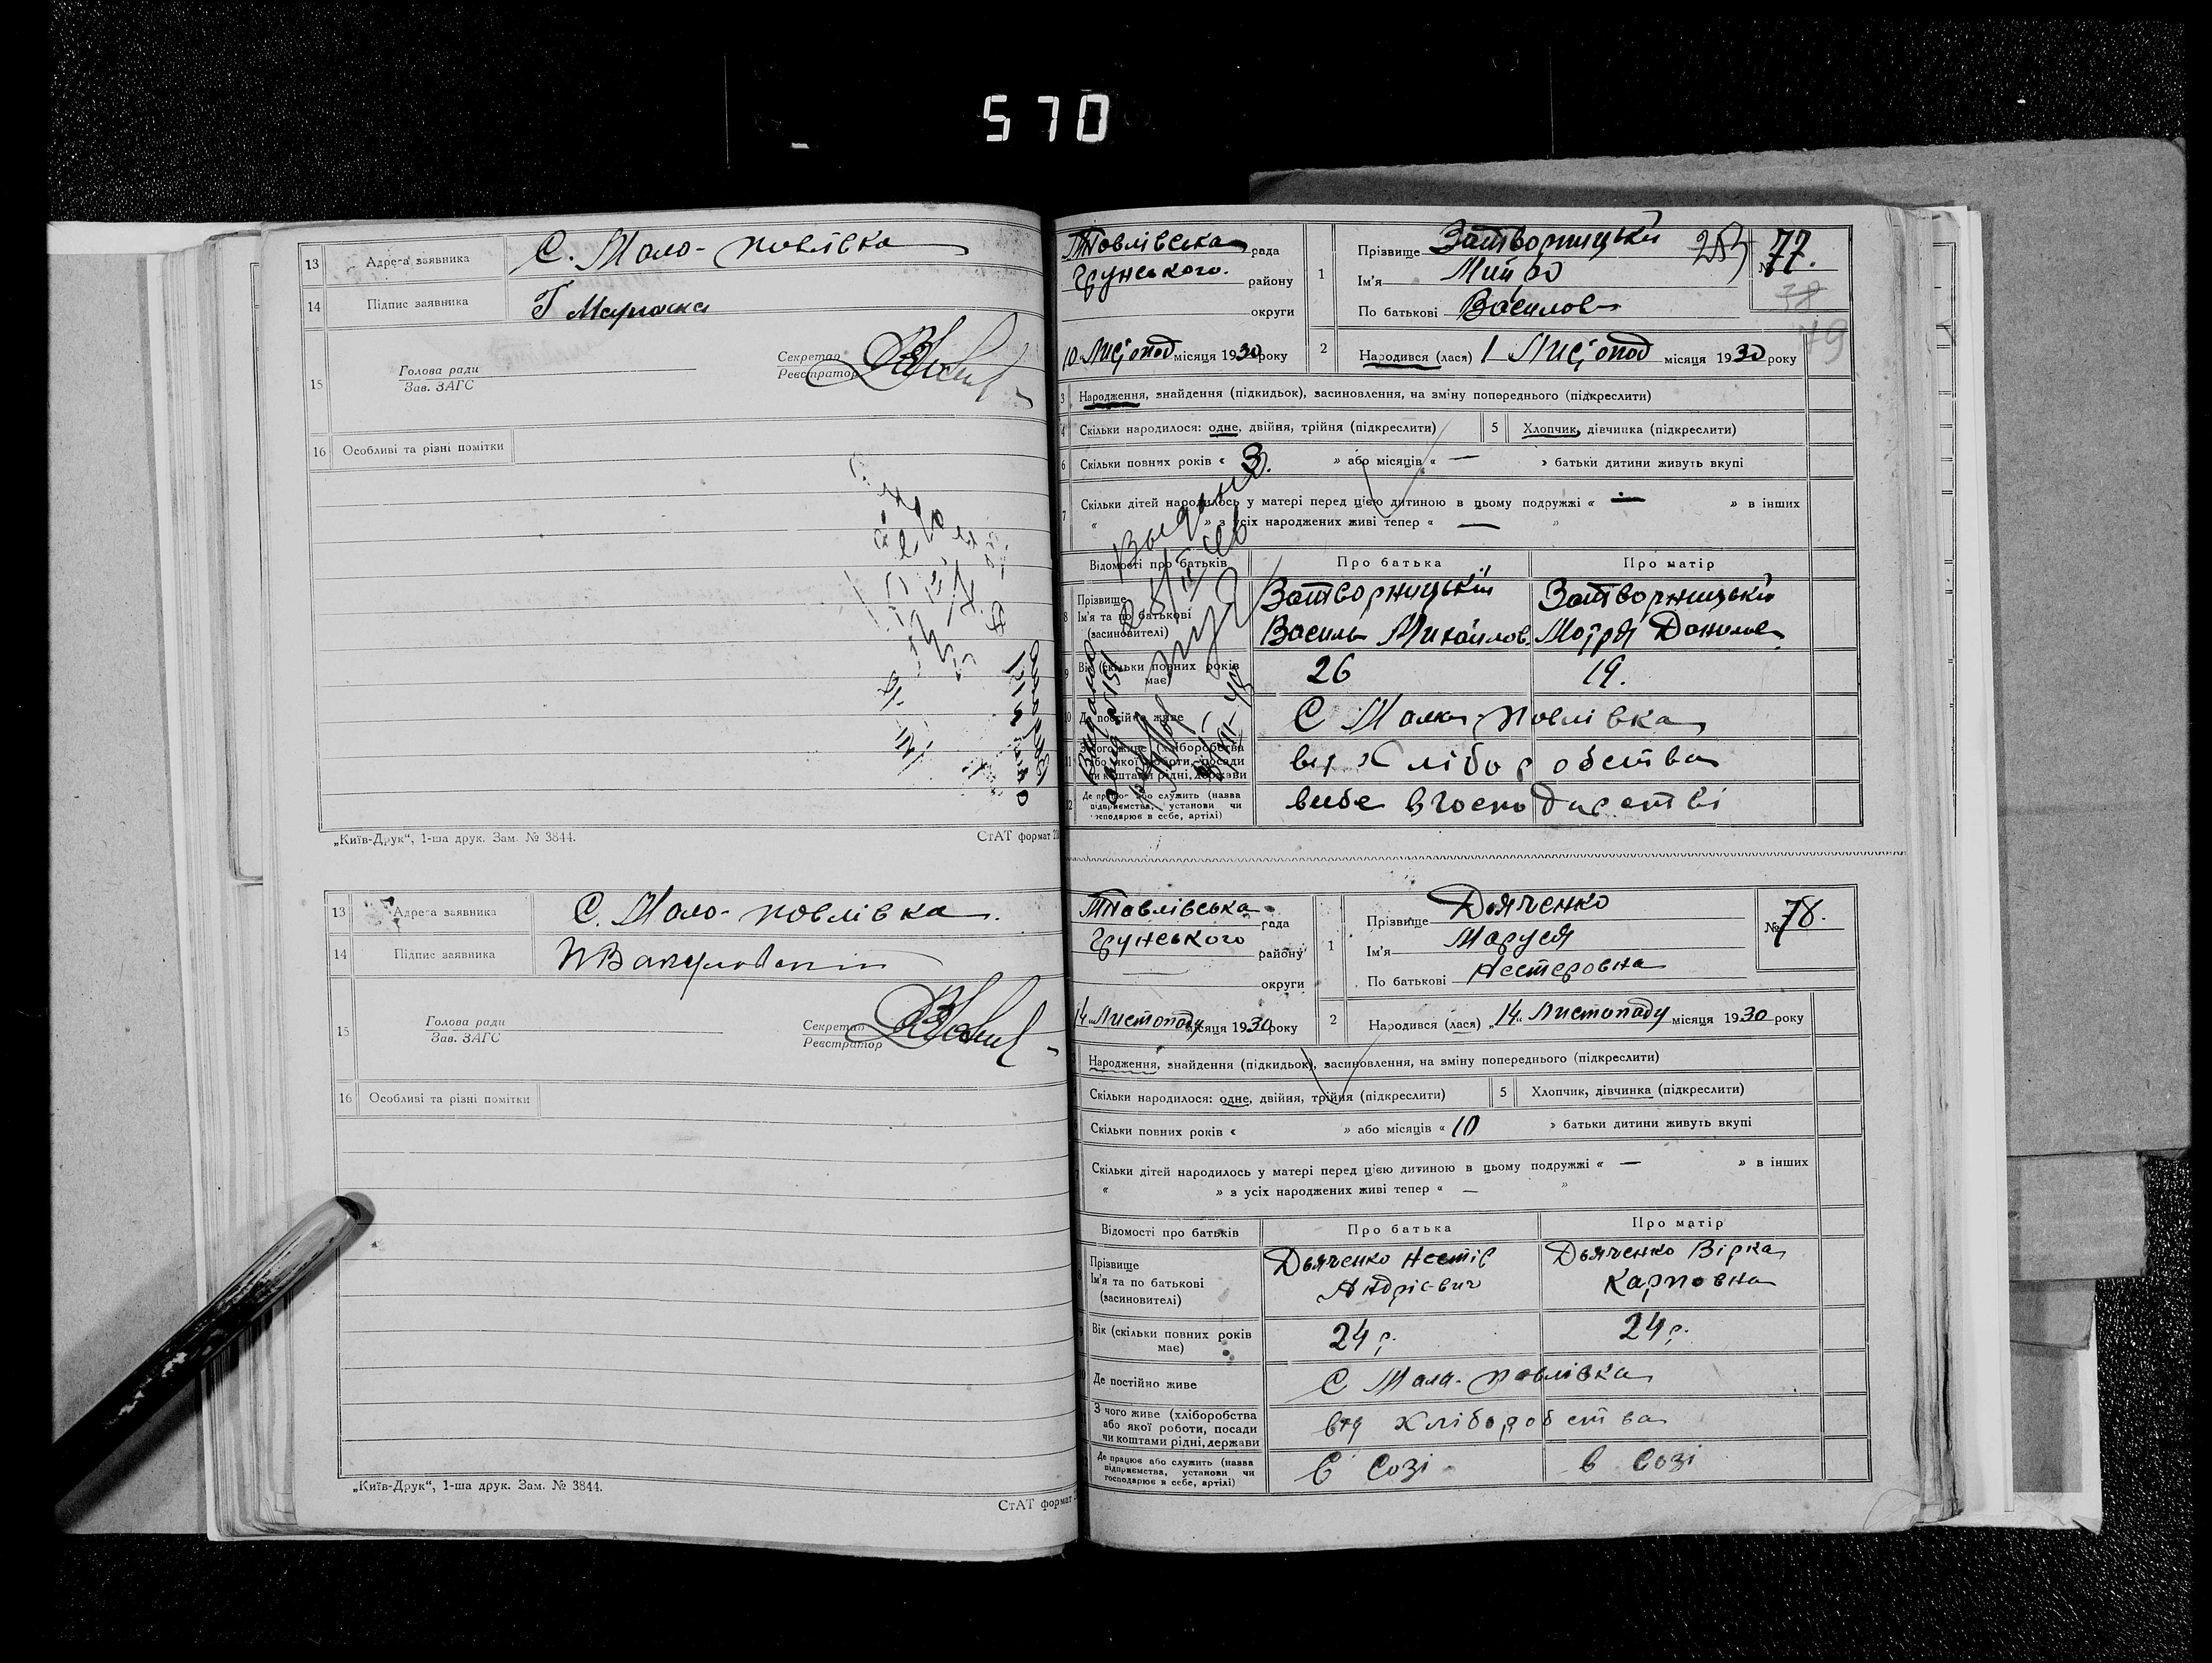 570
13 Адреса заявника С. Мало-Повлівка
14 Підпис заявника Г
15 Голова ради Зав. ЗАГС Секретар Реєстратор
16 Особливі та різні помітки
„Київ-Друк“, 1-ша друк. Зам. № 3844. СтАТ формат
13 Адреса заявника С. Мало-повлівка
14 Підпис заявника
15 Голова ради Зав. ЗАГС Секретар Реєстратор
16 Особливі та різні помітки
„Київ-Друк“, 1-ша друк. Зам. № 3844.
СтАТ формат
рада 1 Прізвище Затворницький № 77.
Грунського району Ім'я 38
округи По батькові Василов
79
10 місяця 1930 року 2 Народився (лася) 1 місяця 1930 року
3 Народження, знайдення (підкидьок), засиновлення, на зміну попереднього (підкреслити)
4 Скільки народилося: одне, двійня, трійня (підкреслити) 5 Хлопчик, дівчинка (підкреслити)
6 Скільки повних років « 3. » або місяців « — » батьки дитини живуть вкупі
7 Скільки дітей народилось у матері перед цією дитиною в цьому подружжі « — » в інших
« » з усіх народжених живі тепер « — »
Відомості про батьків Про батька Про матір
8 Прізвище Ім'я та по батькові (засновителі) Затворницький Затворницький
Василь Михайлов. Мотря Данилов
9 Вік (скільки повних років має) 26 19.
10 Де постійно живе С Мало-Повлівка
11 З чого живе (хліборобства або якої роботи, посади чи коштами рідні, держави від Хліборобства
12 Де працює або служить (назва підприємства, установи чи господарює в себе, артілі) всебе
рада 1 Прізвище Дьяченко № 78.
Грунського району Ім'я Маруся
округи По батькові Нестеровна
14 Листопаду місяця 1930 року 2 Народився (лася) „14“ Листопаду місяця 1930 року
Народження, знайдення (підкидьок), засиновлення, на зміну попереднього (підкреслити)
Скільки народилося: одне, двійня, трійня (підкреслити) 5 Хлопчик, дівчинка (підкреслити)
Скільки повних років « » або місяців « 10 » батьки дитини живуть вкупі
Скільки дітей народилось у матері перед цією дитиною в цьому подружжі « — » в інших
« » з усіх народжених живі тепер « — »
Відомості про батьків Про батька Про матір
8 Прізвище Ім'я та по батькові (засиновителі) Дьяченко Нестір Дьяченко Вірка
Андрієвич Карповна
9 Вік (скільки повних років має) 24 р. 24 р.
10 Де постійно живе С Мала-повлівка
З чого живе (хліборобства або якої роботи, посади чи коштами рідні, держави від хліборобства
Де працює або служить (назва підприємства, установи чи господарює в себе, артілі) в Созі в Созі